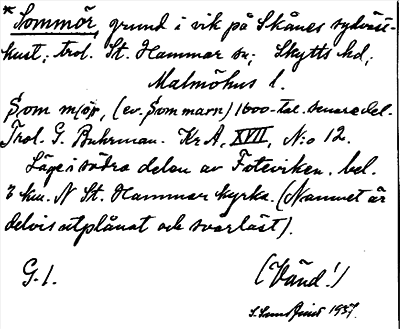 * Sommör, grund i vik på Skånes sydväst-
kust; trol. St. Hammar sn; Skytts hd;
Malmöhus l.
Som mör, (ev. Som marn) 1600-tal. senare del.
Trol. G. Buhrman. Kr A, XVII, N:o 12.
Läge i södra delen av Foteviken, bel.
3 km. N St. Hammar kyrka. (Namnet är
delvis utplånat och svårläst).
G. l. (Vänd!)
1937.